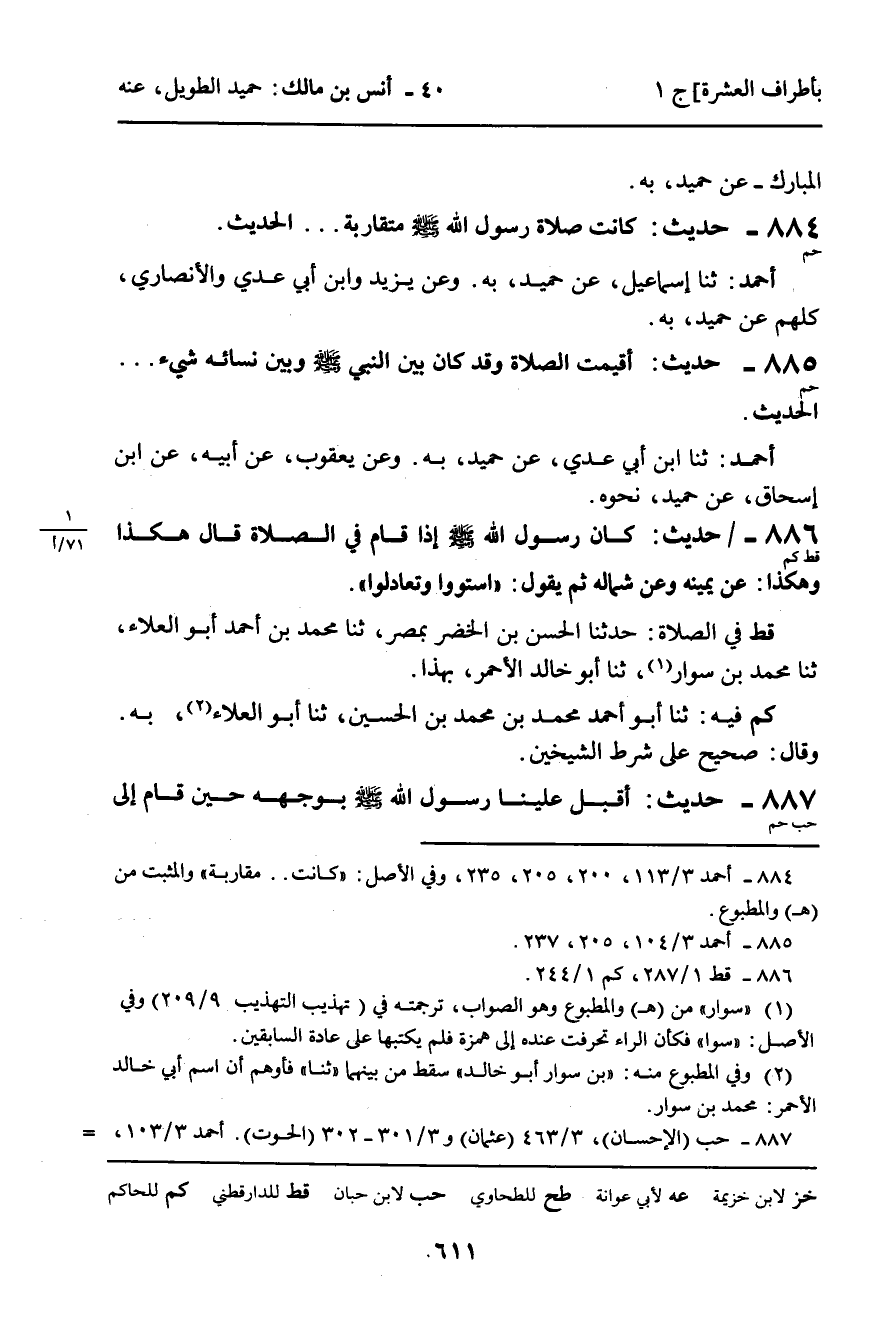 بأطراف العشرة] ج ١ ٤٠ ـ أنس بن مالك: حميد الطويل، عنه
المبارك ـ عن حميد، به.
٨٨٤ ـ حديث: كانت صلاة رسول الله ﷺ متقاربة... الحديث.
حم
أحمد: ثنا إسماعيل، عن حميد، به. وعن يزيد وابن أبي عدي والأنصاري،
كلهم عن حميد، به.
٨٨٥ ـ حديث: أقيمت الصلاة وقد كان بين النبي ﷺ وبين نسائه شيء...
حم
الحديث.
أحمد: ثنا ابن أبي عدي، عن حميد، به. وعن يعقوب، عن أبيه، عن ابن
إسحاق، عن حميد، نحوه.
١
٨٨٦ ـ / حديث: كان رسول الله ﷺ إذا قام في الصلاة قال هكذا
٧١/أ
قط كم
وهكذا: عن يمينه وعن شماله ثم يقول: «استووا وتعادلوا».
قط في الصلاة: حدثنا الحسن بن الخضر بمصر، ثنا محمد بن أحمد أبو العلاء،
ثنا محمد بن سوار(١)، ثنا أبو خالد الأحمر، بهذا.
كم فيه: ثنا أبو أحمد محمد بن محمد بن الحسين، ثنا أبو العلاء(٢)، به.
وقال: صحيح على شرط الشيخين.
٨٨٧ ـ حديث: أقبل علينا رسول الله ﷺ بوجهه حين قام إلى
حب حم
٨٨٤ ـ أحمد ١١٣/٣، ٢٠٠، ٢٠٥، ٢٣٥، وفي الأصل: «كانت.. مقاربة» والمثبت من
(هـ) والمطبوع.
٨٨٥ ـ أحمد ١٠٤/٣، ٢٠٥، ٢٣٧.
٨٨٦ ـ قط ٢٨٧/١، كم ٢٤٤/١.
(١) «سوار» من (هـ) والمطبوع وهو الصواب، ترجمته في ( تهذيب التهذيب ٢٠٩/٩) وفي
الأصل: «سوا» فكأن الراء تحرفت عنده إلى همزة فلم يكتبها على عادة السابقين.
(٢) وفي المطبوع منه: «بن سوار أبو خالد» سقط من بينهما «ثنا» فأوهم أن اسم أبي خالد
الأحمر: محمد بن سوار.
٨٨٧ ـ حب (الإحسان)، ٤٦٣/٣ (عثمان) و ٣٠١/٣ ـ ٣٠٢ (الحوت). أحمد ١٠٣/٣، =
خز لابن خزيمة عه لأبي عوانة طح للطحاوي حب لابن حبان قط للدارقطني كم للحاكم
٦١١